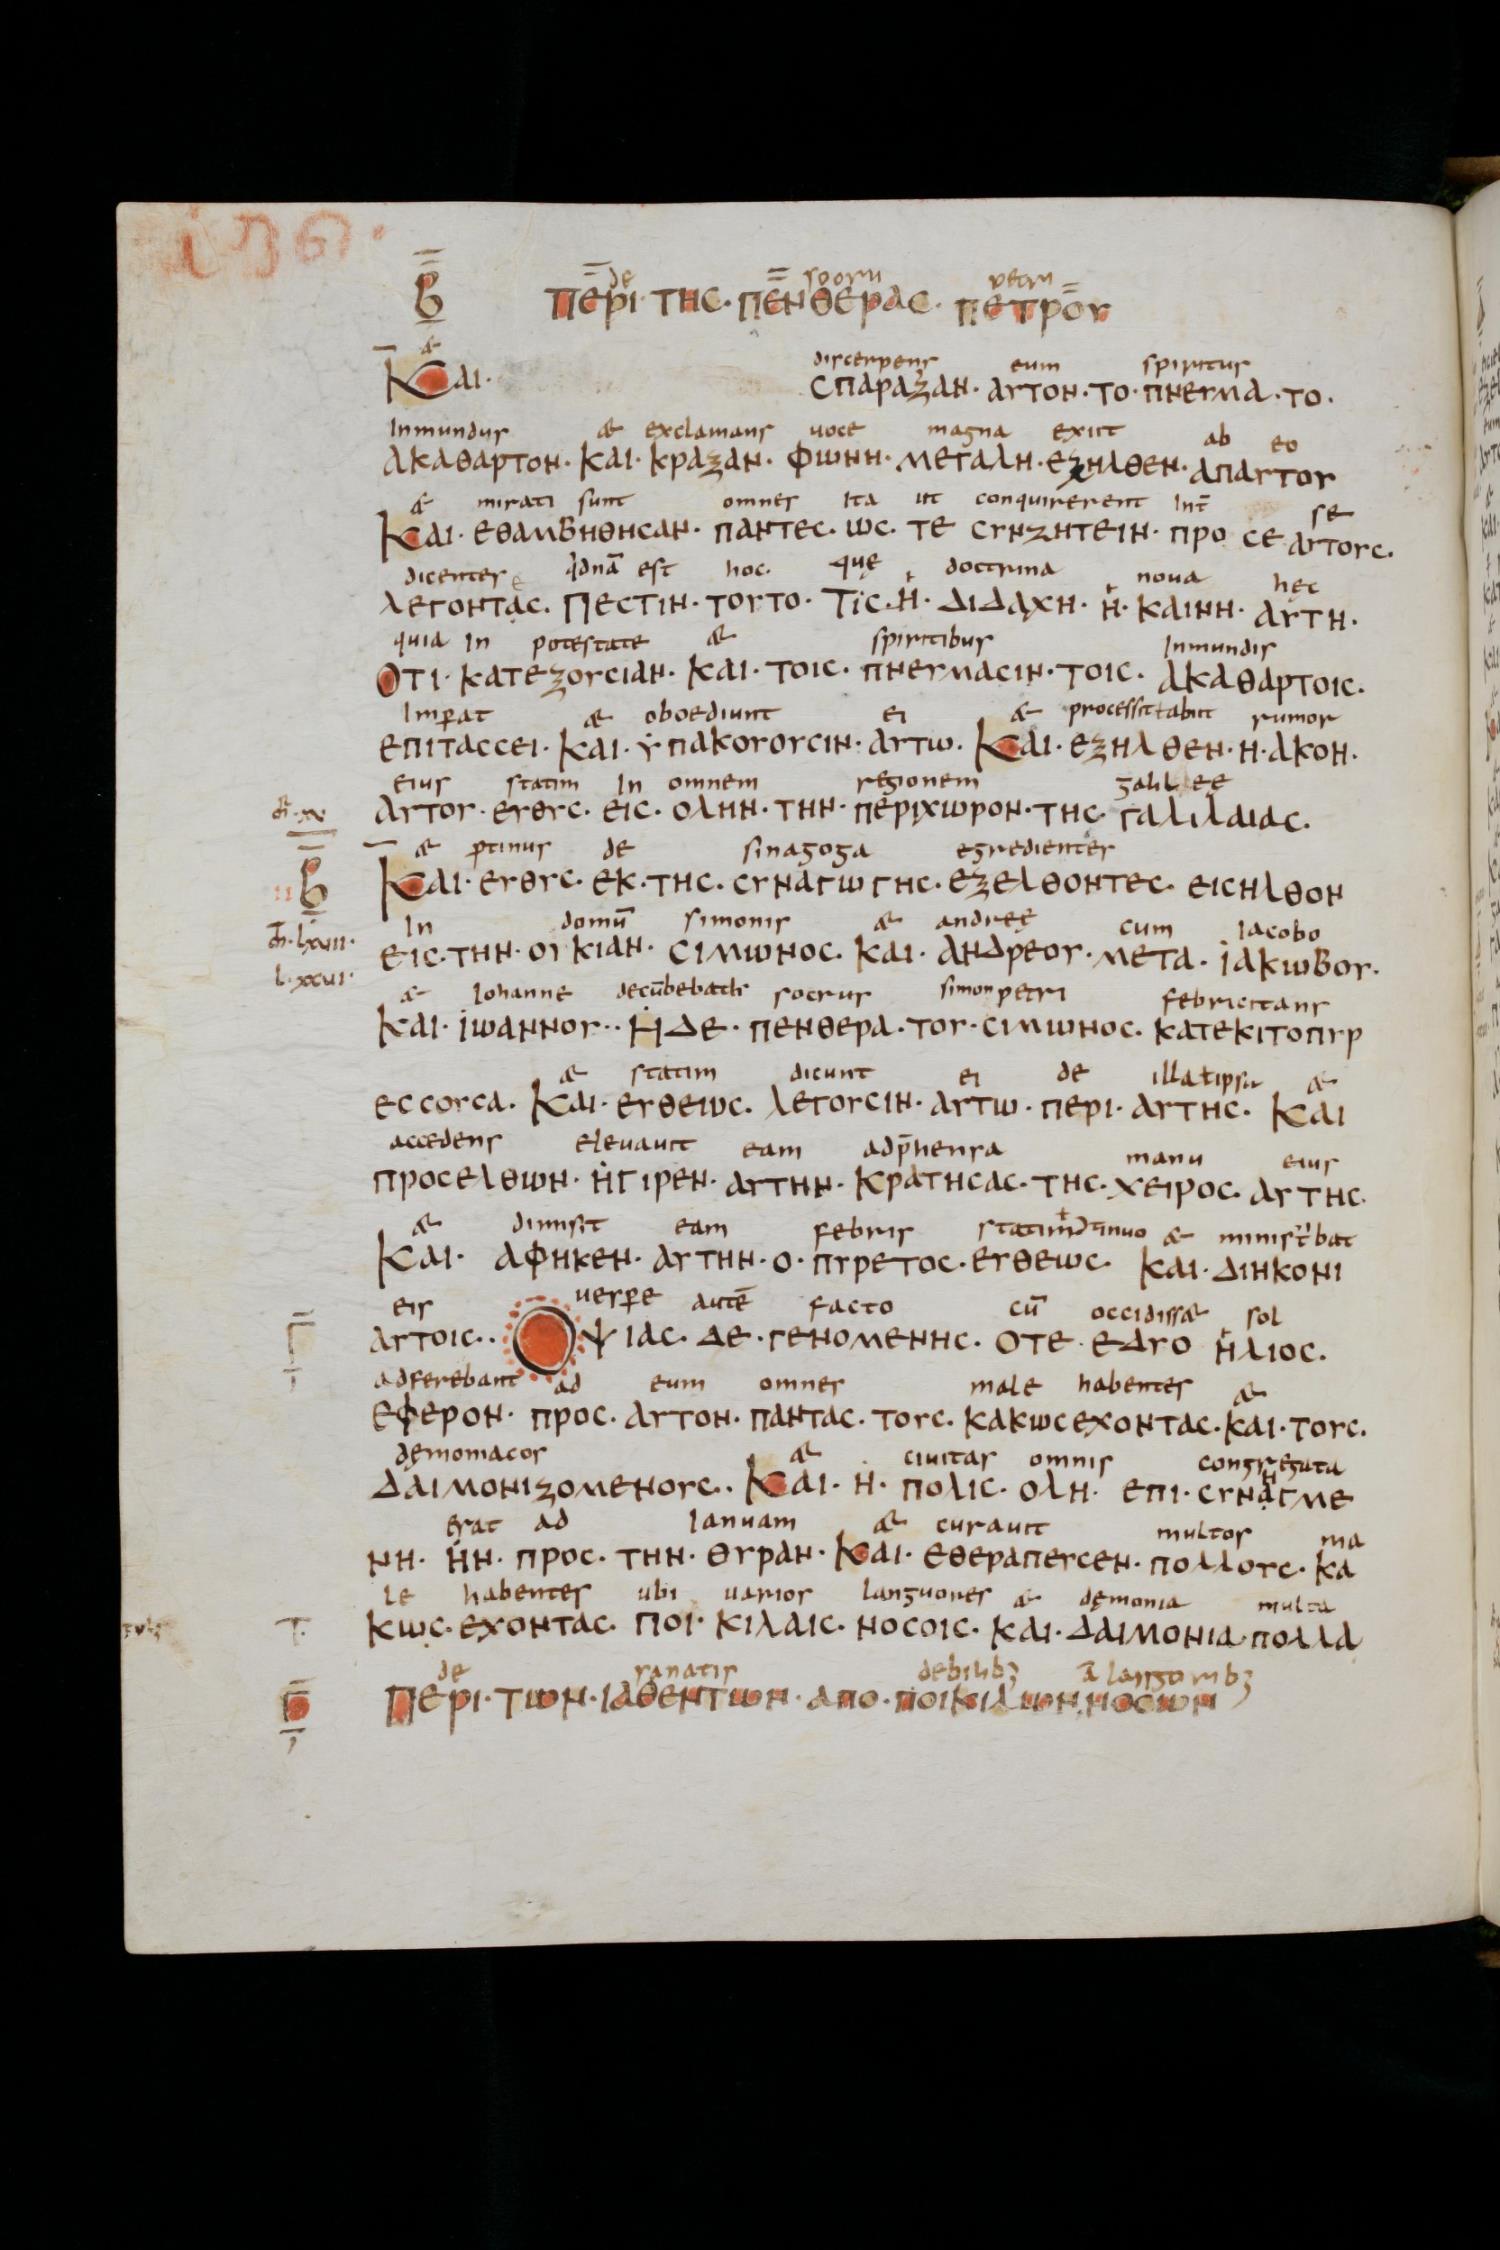 136.
de socru petri
B ΠΕΡΙ· ΤΗC· ΠΕΝΘΕΡΑC· ΠΕΤΡΟΥ
& discerpens eum spiritus
ΚΑΙ· CΠΑΡΑΞΑΝ· ΑΥΤΟΝ· ΤΟ· ΠΝΕΥΜΑ· ΤΟ·
Inmundus & exclamans uoce magna exiit ab eo
ΑΚΑΘΑΡΤΟΝ· ΚΑΙ· ΚΡΑΞΑΝ· ΦΩΝΗ· ΜΕΓΑΛΗ· ΕΞΗΛΘΕΝ· ΑΠΑΥΤΟΥ
& mirati sunt omnes Ita ut conquirerent Int̄ se
ΚΑΙ· ΕΘΑΜΒΗΘΗCΑΝ· ΠΑΝΤΕC· ΩC· ΤΕ CΥΝΖΗΤΕΙΝ· ΠΡΟ CΕ ΑΥΤΟΥC·
dicentes qdnā est hoc· quę doctrina noua hęc
ΛΕΓΟΝΤΑC· ΠΕCΤΙΝ· ΤΟΥΤΟ· ΤΙC· Η· ΔΙΔΑΧΗ· Η· ΚΑΙΝΗ· ΑΥΤΗ·
quia In potestate & spiritibus Inmundis
ΟΤΙ· ΚΑΤΕΞΟΥCΙΑΝ· ΚΑΙ· ΤΟΙC· ΠΝΕΥΜΑCΙΝ· ΤΟΙC· ΑΚΑΘΑΡΤΟΙC·
Imꝑat & oboediunt ei & processit ł abiit rumor
ΕΠΙΤΑCCΕΙ· ΚΑΙ· ΥΠΑΚΟΥΟΥCΙΝ· ΑΥΤΩ· ΚΑΙ· ΕΞΗΛΘΕΝ· Η· ΑΚΟΗ·
eius statim In omnem regionem galileę
ΑΥΤΟΥ· ΕΥΘΥC· ΕΙC· ΟΛΗΝ· ΤΗΝ· ΠΕΡΙΧΩΡΟΝ· ΤΗC· ΓΑΛΙΛΑΙΑC·
& ꝓtinus de sinagoga egredientes
B ΚΑΙ· ΕΥΘΥC· ΕΚ· ΤΗC· CΥΝΑΓΩΓΗC· ΕΞΕΛΘΟΝΤΕC· ΕΙCΗΛΘΟΝ
In domū simonis & andreę cum Iacobo
ΕΙC· ΤΗΝ· ΟΙΚΙΑΝ· CΙΜΩΝΟC· ΚΑΙ· ΑΝΔΡΕΟΥ· ΜΕΤΑ· ΙΑΚΩΒΟΥ·
l·xxvi·
& Iohanne socrus simon petri febricitans
ΚΑΙ· ΙΩΑΝΝΟΥ·· ΗΔΕ· ΠΕΝΘΕΡΑ· ΤΟΥ· CΙΜΩΝΟC· ΚΑΤΕΚΙΤΟΠΥΡ
& statim dicunt ei de illa ł ipsa &
ΕCCΟΥCΑ· ΚΑΙ· ΕΥΘΕΩC· ΛΕΓΟΥCΙΝ· ΑΥΤΩ· ΠΕΡΙ· ΑΥΤΗC· ΚΑΙ
accedens eleuauit eam adp̄hensa manu eius
ΠΡΟCΕΛΘΩΝ· ΗΓΙΡΕΝ· ΑΥΤΗΝ· ΚΡΑΤΗCΑC· ΤΗC· ΧΕΙΡΟC· ΑΥΤΗC·
& dimisit eam febris statim & minist̄bat
ΚΑΙ· ΑΦΗΚΕΝ· ΑΥΤΗΝ· Ο· ΠΥΡΕΤΟC· ΕΥΘΕΩC· ΚΑΙ· ΔΙΗΚΟΝΙ
eis uesꝑe autē facto cū occidiss& sol
Γ ΑΥΤΟΙC·· ΟΨΙΑC· ΔΕ· ΓΕΝΟΜΕΝΗC· ΟΤΕ· ΕΔΥΟ ΗΛΙΟC·
adferebant ad eum omnes male habentes &
ΕΦΕΡΟΝ· ΠΡΟC· ΑΥΤΟΝ· ΠΑΝΤΑC· ΤΟΥC· ΚΑΚΩCΕΧΟΝΤΑC· ΚΑΙ· ΤΟΥC·
dęmoniacos & ciuitas omnis congregata
ΔΑΙΜΟΝΙΖΟΜΕΝΟΥC·· ΚΑΙ· Η· ΠΟΛΙC· ΟΛΗ· ΕΠΙ· CΥΝΗΓΜΕ
erat ad Ianuam & curauit multos ma
ΝΗ· ΗΝ· ΠΡΟC· ΤΗΝ· ΘΥΡΑΝ· ΚΑΙ· ΕΘΕΡΑΠΕΥCΕΝ· ΠΟΛΛΟΥC· ΚΑ
le habentes ubi uarios languores & dęmonia multa
ΚΩC· ΕΧΟΝΤΑC· ΠΟΙ· ΚΙΛΑΙC· ΝΟCΟΙC· ΚΑΙ· ΔΑΙΜΟΝΙΑ· ΠΟΛΛΑ
de sanatis
Γ ΠΕΡΙ· ΤΩΝ· ΙΑΘΕΝΤΩΝ· ΑΠΟ· ΠΟΙΚΙΛΩΝ· ΝΟCΩΝ